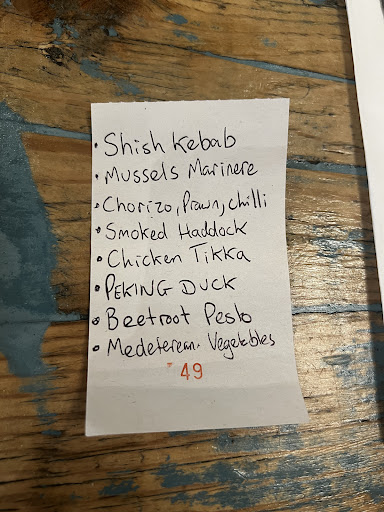 • Shish Kebab
• Mussels Marinere
• Chorizo, Prawn, chilli
• Smoked Haddock
• Chicken Tikka
• PEKING DUCK
• Beetroot Pesto
• Medeterean Vegetables
49